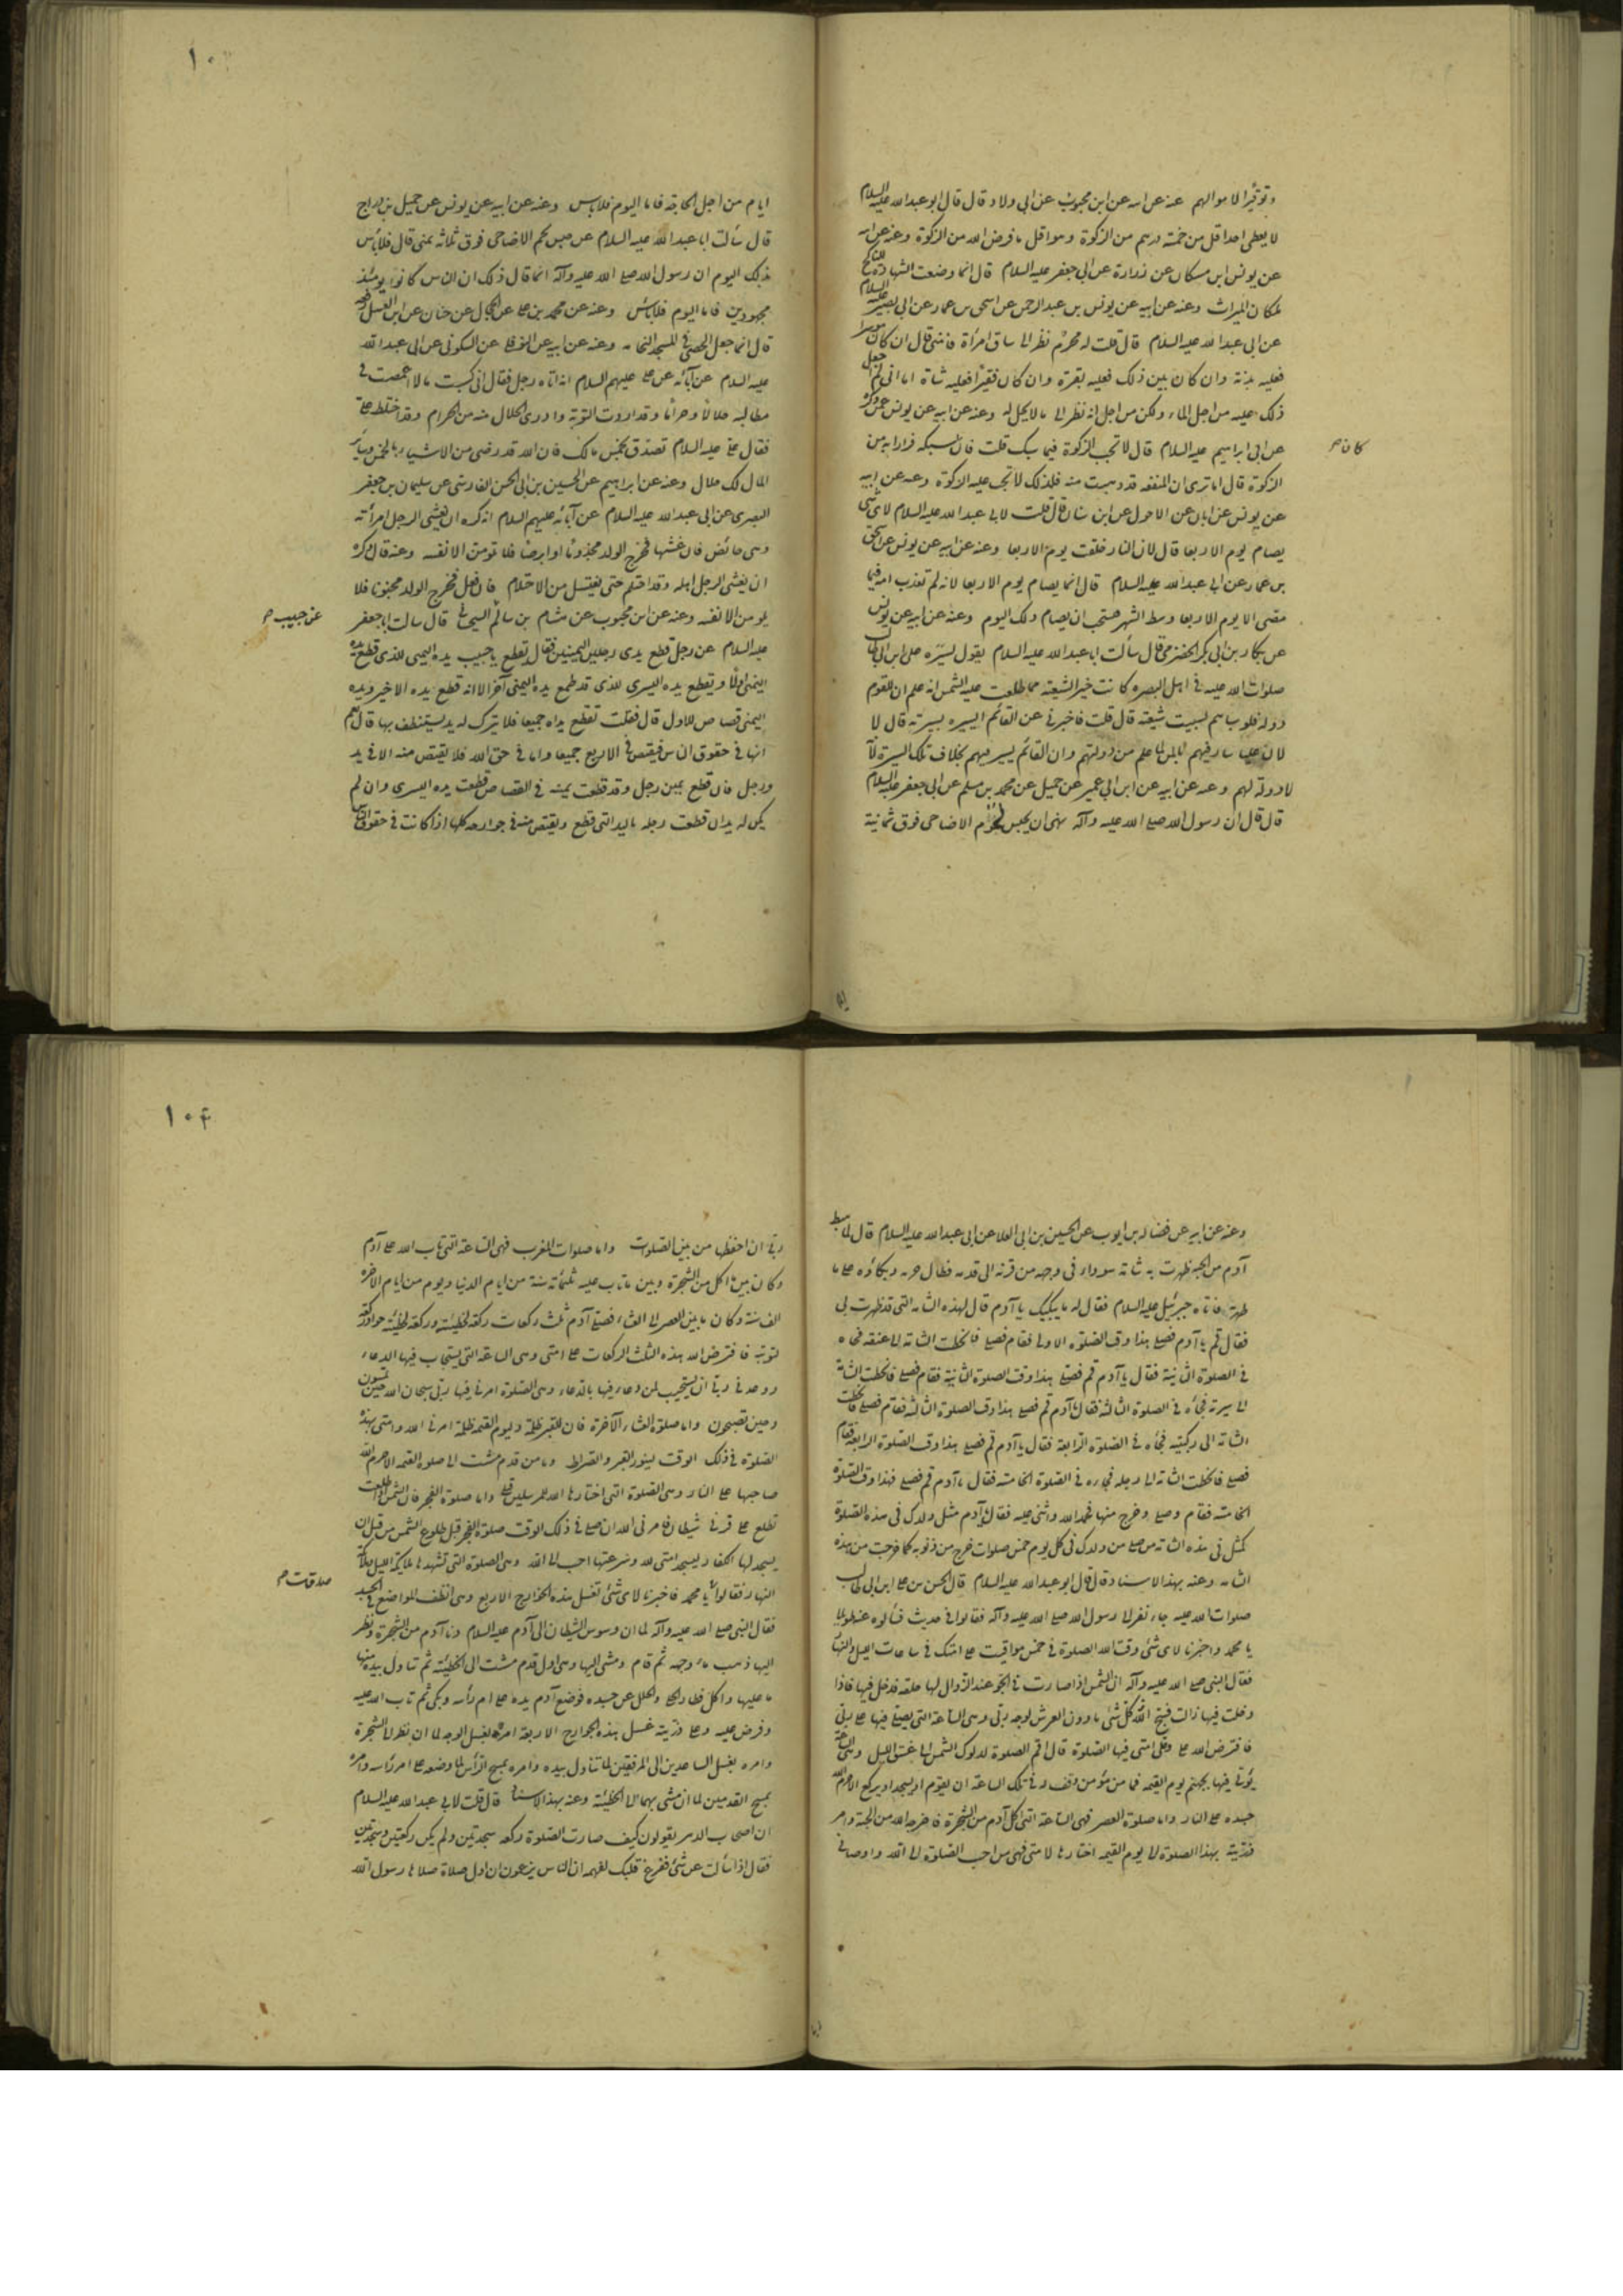 وتوقيرا لاموالهم عنه عن ابيه عن ابن محبوب عن ابى ولاد قال قال ابو عبد الله عليه السلام
لا يعطى احد اقل من خمسة درهم من الزكوة وهو اقل ما فرض الله من الزكوة وعنه عن ابيه
عن يونس ابن مسكان عن زرارة عن ابى جعفر عليه السلام قال انما وضعت الشهادة للناكح
لمكان الميراث وعنه عن ابيه عن يونس بن عبد الرحمن عن اسحق بن عمار عن ابى بصير
عن ابى عبد الله عليه السلام قال قلت له محرم نظر الى ساق امرأة فامنى قال ان كان موسرا
فعليه بدنة وان كان بين ذلك فعليه بقرة وان كان فقيرا فعليه شاة اما انى لم اجعل
ذلك عليه من اجل الماء ولكن من اجل انه نظر الى ما لا يحل له وعنه عن ابيه عن يونس عمن ذكره
عن ابى ابراهيم عليه السلام قال لا تجب الزكوة فيما سبك قلت فان سبكه فرارا به من
كان م
الزكوة قال اما ترى ان المنفعة قد ذهبت منه فلذلك لا تجب عليه الزكوة وعنه عن ابيه
عن يونس عن ابان عن الاحول عن ابن سنان قال قلت لابى عبد الله عليه السلام لاى شئ
يصام يوم الاربعا قال لان النار خلقت يوم الاربعا وعنه عن ابيه عن يونس عن اسحق
بن عمار عن ابى عبد الله عليه السلام قال انما يصام يوم الاربعا لانه لم تعذب امة فيما
مضى الا يوم الاربعا وسط الشهر فتستحب ان يصام ذلك اليوم وعنه عن ابيه عن يونس
عن بكار بن ابى بكر الحضرمى قال سألت ابا عبد الله عليه السلام يقول لسيرة على ابن ابى طالب
صلوات الله عليه فى اهل البصرة كانت خير الشيعته مما طلعت عليه الشمس انه علم ان للقوم
دولة فلو سباهم لسبيت شيعته قال قلت فاخبرنى عن القائم ايسير بسيرته قال لا
لان عليا سار فيهم بالمن لما علم من دولتهم وان القائم يسير فيهم بخلاف تلك السيرة لانه
لا دولة لهم وعنه عن ابيه عن ابن ابى عمير عن جميل عن محمد بن مسلم عن ابى جعفر عليه السلام
قال قال ان رسول الله صلى الله عليه وآله نهى ان يحبس لحوم الاضاحى فوق ثمانية
ايام من اجل الحاجة فاما اليوم فلا بأس وعنه عن ابيه عن يونس عن جميل بن دراج
قال سألت ابا عبد الله عليه السلام عن حبس لحم الاضاحى فوق ثلاثة بمنى قال فلا بأس
بذلك اليوم ان رسول الله صلى الله عليه وآله انما قال ذلك ان الناس كانوا يومئذ
مجهودين فاما اليوم فلا بأس وعنه عن محمد بن على عن الحجال عن حنان عن ابن العسل رفعه
قال انما جعل الحصى فى المسجد للنخامة وعنه عن ابيه عن النوفلى عن السكونى عن ابى عبد الله
عليه السلام عن آبائه عن على عليهم السلام انه اتاه رجل فقال انى كسبت مالا اغمضت فى
مطالبه حلالا وحراما وقد اردت التوبة ولا ادرى الحلال منه من الحرام وقد اختلط على
فقال على عليه السلام تصدق بخمس مالك فان الله قد رضى من الاشياء بالخمس وسائر
المال لك حلال وعنه عن ابراهيم عن الحسين بن ابى الحسن الفارسى عن سليمان بن جعفر
البصرى عن ابى عبد الله عليه السلام عن آبائه عليهم السلام انه كره ان يغشى الرجل امرأته
وهى حائض فان غشيها فخرج الولد مجذوما او ابرص فلا تلومن الا نفسه وعنه قال وكره
ان يغشى الرجل اهله وقد احتلم حتى يغتسل من الاحتلام فان فعل فخرج الولد مجنونا فلا
يلومن الا نفسه وعنه عن ابن محبوب عن هشام بن سالم السجستانى قال سالت ابا جعفر
عن حبيب م
عليه السلام عن رجل قطع يدى رجلين اليمينين فقال تقطع يا حبيب يده اليمنى للذى قطع يده
اليمنى اولا وتقطع يده اليسرى للذى قطع يده اليمنى آخرا لانه قطع يده الاخير ويده
اليمنى قصاص للاول قال فقلت تقطع يداه جميعا فلا يترك له يد يستنظف بها قال نعم
انها فى حقوق الناس فيقتص فى الاربع جميعا واما فى حق الله فلا يقتص منه الا فى يد
ورجل فان قطع يمين رجل وقد قطعت يمينه فى القصاص قطعت يده اليسرى وان لم
يكن له يدان قطعت رجله باليد التى قطع ويقتص منه فى جوارحه كلها اذا كانت فى حقوق الناس
١٠٤
وعنه عن ابيه عن فضالة بن ايوب عن الحسين بن ابى العلا عن ابى عبد الله عليه السلام قال لما هبط
آدم من الجنة ظهرت به شامة سوداء فى وجهه من قرنه الى قدمه فطال حزنه وبكاؤه على ما
ظهر به فاتاه جبرئيل عليه السلام فقال له ما يبكيك يا آدم قال لهذه الشامة التى قد ظهرت بى
فقال قم يا آدم فصل هذا وقت الصلوة الاولى فقام فصلى فانحطت الشامة الى عنقه فجاءه
فى الصلوة الثانية فقال يا آدم قم فصل هذا وقت الصلوة الثانية فقام فصلى فانحطت الشامة
الى سرته فجاءه فى الصلوة الثالثة فقال يا آدم قم فصل هذا وقت الصلوة الثالثة فقام فصلى فانحطت
الشامة الى ركبتيه فجاءه فى الصلوة الرابعة فقال يا آدم قم فصل هذا وقت الصلوة الرابعة فقام
فصلى فانحطت الشامة الى رجليه فجاءه فى الصلوة الخامسة فقال يا آدم قم فصل فهذا وقت الصلوة
الخامسة فقام وصلى وخرج منها فحمد الله واثنى عليه فقال يا آدم مثل ولدك فى هذه الصلوة
كمثل فى هذه الشامة من صلى من ولدك فى كل يوم خمس صلوات خرج من ذنوبه كما خرجت من هذه
الشامة وعنه بهذا الاسناد قال قال ابو عبد الله عليه السلام قال الحسن بن على ابن ابى طالب
صلوات الله عليه جاء نفر الى رسول الله صلى الله عليه وآله فقالوا فى حديث سألوه عنه طويل
يا محمد واخبرنا لاى شئ وقت الله الصلوة فى خمس مواقيت على امتك فى ساعات الليل والنهار
فقال النبى صلى الله عليه وآله ان الشمس اذا صارت فى الجو عند الزوال لها حلقة تدخل فيها فاذا
دخلت فيها زالت فسبح الله كل شئ مادون العرش لوجه ربى وهى الساعة التى يصلى فيها على ربى
فافترض الله على وعلى امتى فيها الصلوة قال اقم الصلوة لدلوك الشمس الى غسق الليل وهى الساعة
يؤتى فيها بجهنم يوم القيمة فما من مؤمن وقف له فى تلك الساعة ان يقوم او يسجد او يركع الا حرم الله
جسده على النار واما صلوة العصر فهى الساعة التى اكل آدم من الشجرة فاخرجه الله من الجنة وامر
ذريته بهذا الصلوة الى يوم القيمة اختارها لامتى فهى من احب الصلوة الى الله واوصانى
ربى ان احفظها من بين الصلوت واما صلوات المغرب فهى الساعة التى تاب الله على آدم
وكان بين ما اكل من الشجرة وبين ما تاب عليه ثلثمائة سنة من ايام الدنيا ويوم من ايام الآخرة
الف سنة وكان ما بين العصر الى العشاء فصلى آدم ثلث ركعات ركعة لخطيئته وركعة لخطيئة حوا وركعة
لتوبته فافترض الله هذه الثلث الركعات على امتى وهى الساعة التى يستجاب فيها الدعاء
ووعدنى ربى ان يستجيب لمن دعاه فيها بالدعاء وهى الصلوة امرنى فيها ربى سبحان الله حين تمسون
وحين تصبحون واما صلوة العشاء الآخرة فان للقبر ظلمة وليوم القيمة ظلمة امرنى الله وامتى بهذه
الصلوة فى ذلك الوقت لينور القبر والصراط وما من قدم مشت الى صلوة العتمة الا حرم الله
صاحبها على النار وهى الصلوة التى اختارها الله للمرسلين قبلى واما صلوة الفجر فان الشمس اذا طلعت
تطلع على قرنى شيطان فامرنى الله ان صلى فى ذلك الوقت صلوة الفجر قبل طلوع الشمس من قبل ان
يسجد لها الكفار ليسجد امتى لله وسرعتها احب الى الله وهى الصلوة التى تشهدها ملائكة الليل وملائكة
النهار فقالوا يا محمد فاخبرنا لاى شئ تغسل هذه الجوارح الاربع وهى انظف المواضع فى الجسد
صدقت م
فقال النبى صلى الله عليه وآله لما ان وسوس الشيطان الى آدم عليه السلام دنا آدم من الشجرة ونظر
اليها ذهب ماء وجهه ثم قام ومشى اليها وهى اول قدم مشت الى الخطيئة ثم تناول بيده منها
ما عليها واكل فطار الحلى والحلل عن جسده فوضع آدم يده على ام رأسه وبكى ثم تاب الله عليه
وفرض عليه وعلى ذريته غسل هذه الجوارح الاربعة امره بغسل الوجه لما ان نظر الى الشجرة
وامره بغسل الساعدين الى المرفقين لما تناول بيده وامره بمسح الرأس لما وضعه على ام رأسه وامره
بمسح القدمين لما ان مشى بهما الى الخطيئة وعنه بهذا الاسناد قال قلت لابى عبد الله عليه السلام
ان اصحاب الدهر يقولون كيف صارت الصلوة ركعة سجدتين ولم يكن ركعتين وسجدتين
فقال اذا سألت عن شئ ففرغ قلبك لفهمه ان الناس يزعمون ان اول صلاة صلاها رسول الله